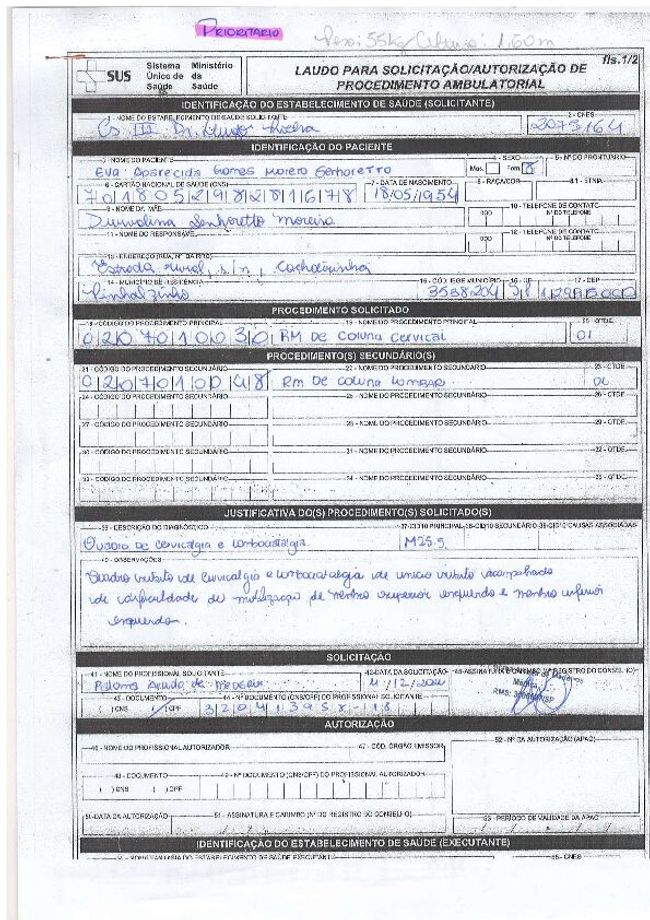 PRIORITARIO
Peso: 55kg / Altura: 1.60m
fls.1/2
SUS
Sistema Único de Saúde
Ministério da Saúde
LAUDO PARA SOLICITAÇÃO/AUTORIZAÇÃO DE PROCEDIMENTO AMBULATORIAL
IDENTIFICAÇÃO DO ESTABELECIMENTO DE SAÚDE (SOLICITANTE)
1 - NOME DO ESTABELECIMENTO DE SAÚDE SOLICITANTE
2 - CNES
Cs III Dr.
IDENTIFICAÇÃO DO PACIENTE
3 - NOME DO PACIENTE
4 - SEXO
5 - Nº DO PRONTUÁRIO
Eva Aparecida Gomes
Mas.
Fem.
6 - CARTÃO NACIONAL DE SAÚDE (CNS)
7 - DATA DE NASCIMENTO
8 - RAÇA/COR
8.1 - ETNIA
701805298281678
18/05/1954
9 - NOME DA MÃE
10 - TELEFONE DE CONTATO
DDD
Nº DO TELEFONE
Moreira
11 - NOME DO RESPONSÁVEL
12 - TELEFONE DE CONTATO
DDD
Nº DO TELEFONE
13 - ENDEREÇO (RUA, Nº, BAIRRO)
Estrada rural, s/n, Cachoeirinha
14 - MUNICÍPIO DE RESIDÊNCIA
15 - CÓD. IBGE MUNICÍPIO
16 - UF
17 - CEP
Pinhalzinho
3538204
SP
PROCEDIMENTO SOLICITADO
18 - CÓDIGO DO PROCEDIMENTO PRINCIPAL
19 - NOME DO PROCEDIMENTO PRINCIPAL
20 - QTDE.
0207010030
RM DE COLUNA CERVICAL
01
PROCEDIMENTO(S) SECUNDÁRIO(S)
21 - CÓDIGO DO PROCEDIMENTO SECUNDÁRIO
22 - NOME DO PROCEDIMENTO SECUNDÁRIO
23 - QTDE.
0207010048
RM DE COLUNA LOMBAR
01
24 - CÓDIGO DO PROCEDIMENTO SECUNDÁRIO
25 - NOME DO PROCEDIMENTO SECUNDÁRIO
26 - QTDE.
27 - CÓDIGO DO PROCEDIMENTO SECUNDÁRIO
28 - NOME DO PROCEDIMENTO SECUNDÁRIO
29 - QTDE.
30 - CÓDIGO DO PROCEDIMENTO SECUNDÁRIO
31 - NOME DO PROCEDIMENTO SECUNDÁRIO
32 - QTDE.
33 - CÓDIGO DO PROCEDIMENTO SECUNDÁRIO
34 - NOME DO PROCEDIMENTO SECUNDÁRIO
35 - QTDE.
JUSTIFICATIVA DO(S) PROCEDIMENTO(S) SOLICITADO(S)
36 - DESCRIÇÃO DO DIAGNÓSTICO
37 - CID10 PRINCIPAL
38 - CID10 SECUNDÁRIO
39 - CID10 CAUSAS ASSOCIADAS
Quadro de cervicalgia e lombociatalgia
M25.5
40 - OBSERVAÇÕES
Quadro súbito de cervicalgia e lombociatalgia de início súbito acompanhado
de dificuldade de mobilização de membro superior esquerdo e membro inferior
esquerdo.
SOLICITAÇÃO
41 - NOME DO PROFISSIONAL SOLICITANTE
42 - DATA DA SOLICITAÇÃO
Paloma
43 - DOCUMENTO
44 - Nº DOCUMENTO (CNS/CPF) DO PROFISSIONAL SOLICITANTE
( ) CNS
CPF
AUTORIZAÇÃO
46 - NOME DO PROFISSIONAL AUTORIZADOR
47 - CÓD. ÓRGÃO EMISSOR
52 - Nº DA AUTORIZAÇÃO (APAC)
48 - DOCUMENTO
49 - Nº DOCUMENTO (CNS/CPF) DO PROFISSIONAL AUTORIZADOR
( ) CNS
( ) CPF
50 - DATA DA AUTORIZAÇÃO
51 - ASSINATURA E CARIMBO (Nº DO REGISTRO DO CONSELHO)
53 - PERÍODO DE VALIDADE DA APAC
IDENTIFICAÇÃO DO ESTABELECIMENTO DE SAÚDE (EXECUTANTE)